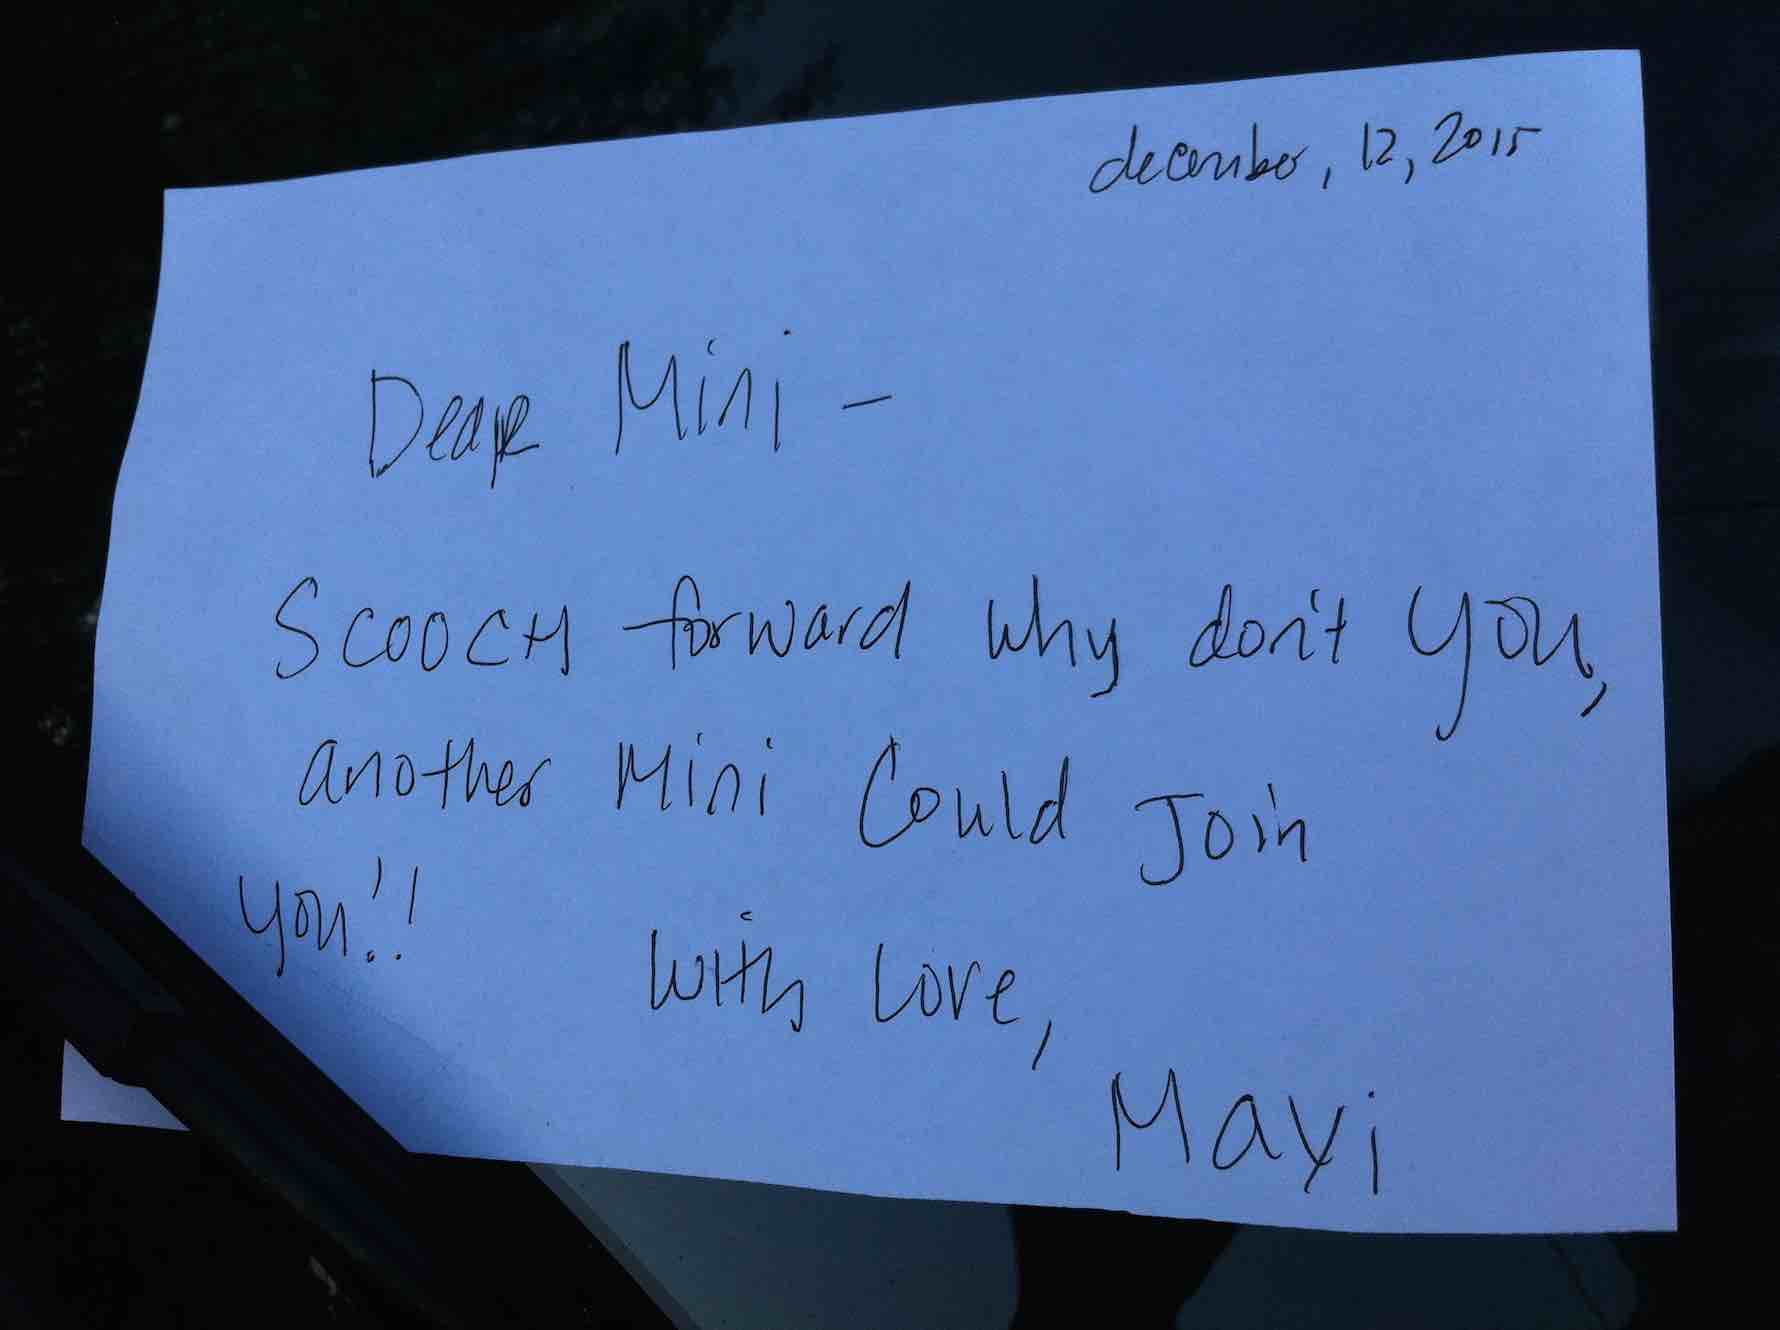 december, 12, 2015
Dear Mini -
SCOOCH forward why don't you,
another Mini Could Join
you!!
with love,
Maxi